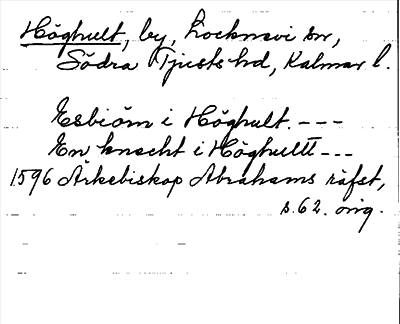 Höghult, by, Locknevi sn,
Södra Tjusts hd, Kalmar l.
Esbiöm i Höghult. ---
En knecht i Höghultt ---
1596 Ärkebiskop Abrahams räfst,
s. 62. orig.